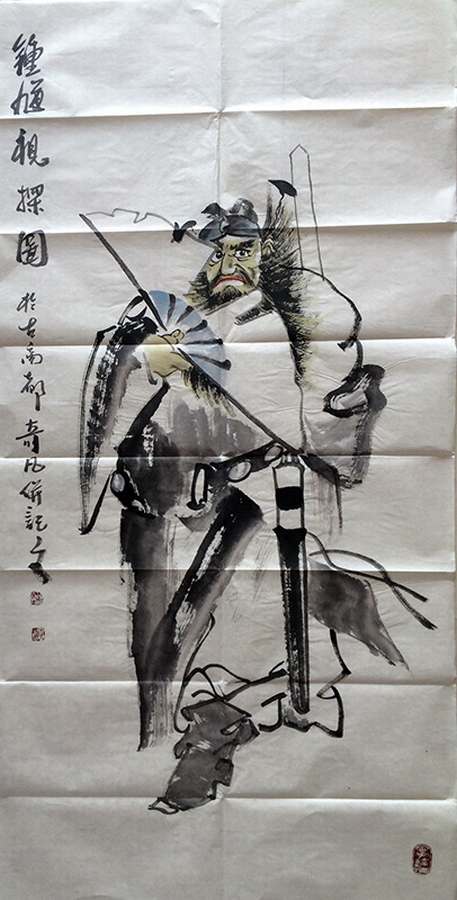 鍾馗視探圖
於古禹都奇凡併記之